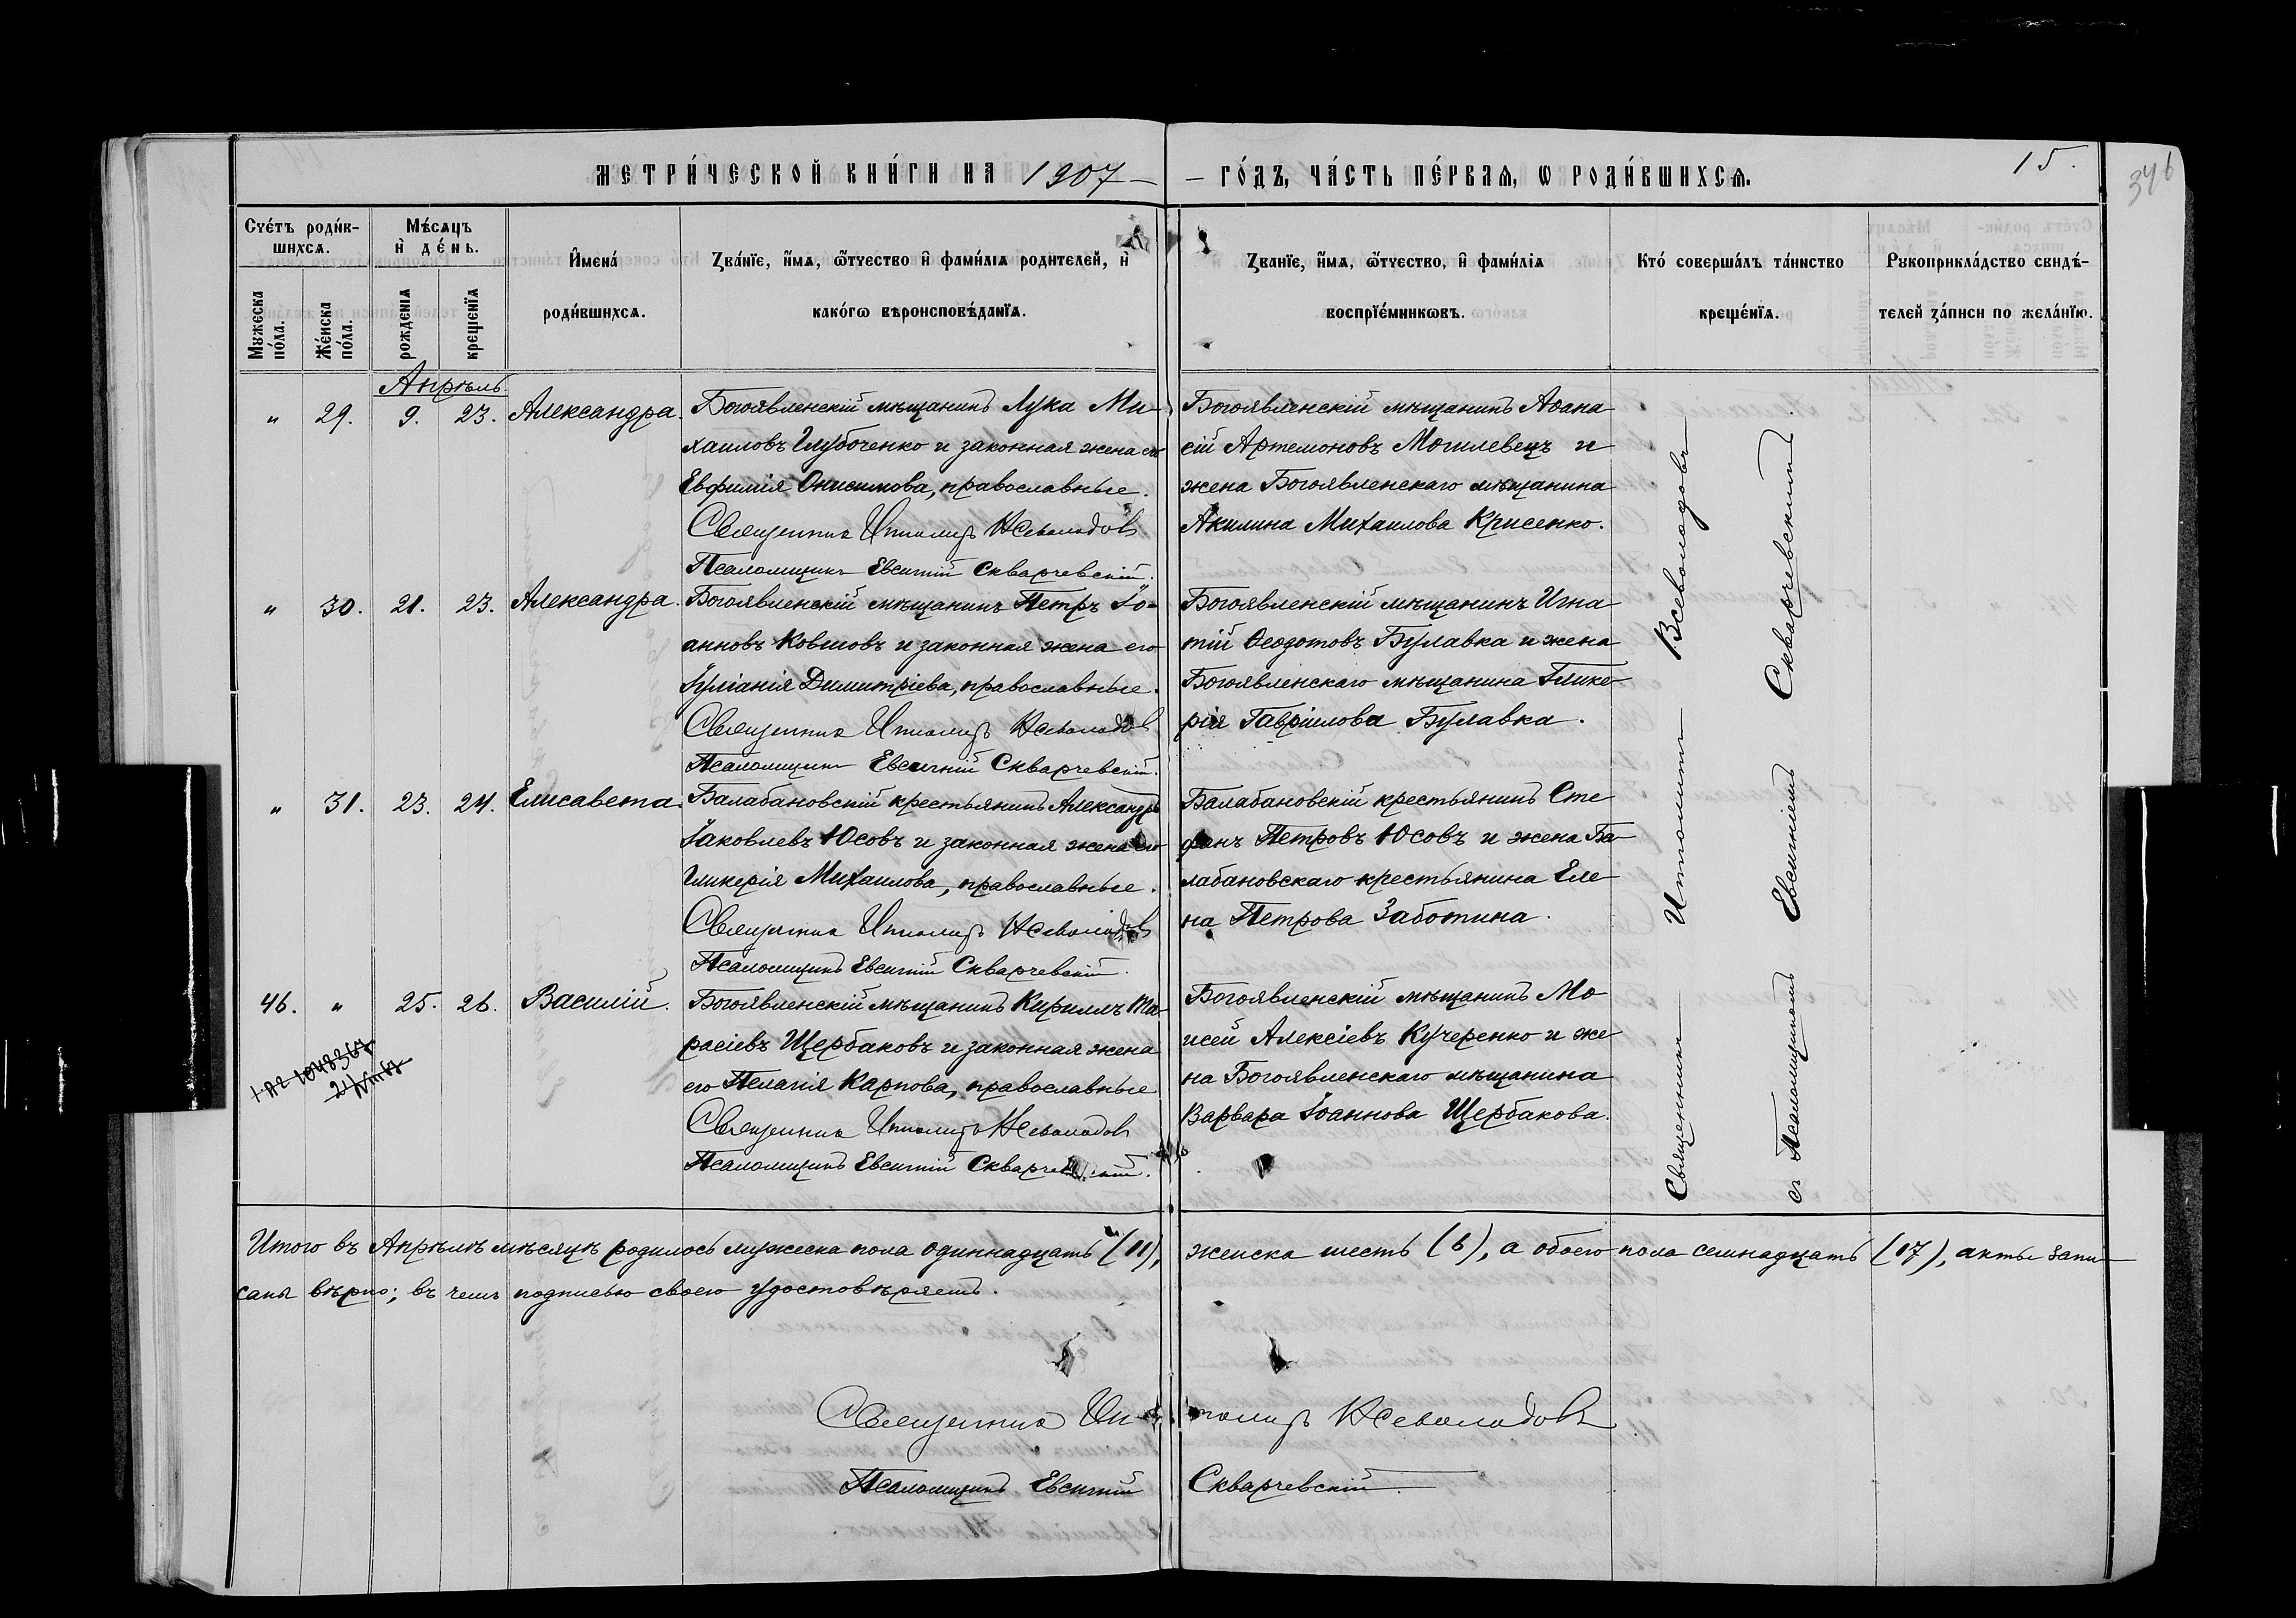 МЕТРИ́ЧЕСКОЙ КНИ́ГИ НА 1907 — — ГО́ДЪ, ЧА́СТЬ ПЕ́РВАѦ, Ѡ РОДИ́ВШИХСѦ. 15.
346
Сче́тъ роди́в-
шихсѧ.
Мѣ́сѧцъ
и҆ де́нь.
Мꙋжеска по́ла.
Же́нска по́ла.
рожденїѧ
крещенїѧ
И҆мена́
роди́вшихсѧ.
Зва́нїе, и҆́мѧ, ѻ҆́тчество и҆ фами́лїѧ родителей, и҆
како́гѡ вѣроисповѣ́данїѧ.
Зва́нїе, и҆́мѧ, ѻ҆́тчество, и҆ фами́лїѧ
воспрїе́мникѡвъ.
Кто̀ соверша́лъ та́инство
креще́нїѧ.
Рꙋкоприкла́дство свидѣ́-
телей за́писи по жела́нїю.
Апрѣль.
" 29. 9. 23. Александра. Богоявленскій мѣщанинъ Лука Ми-
хаиловъ Глубоченко и законная жена его
Евфимія Онисимова, православные.
Священникъ Ипполитъ Всеволодовъ
Псаломщикъ Евсигній Скварчевскій.
Богоявленскій мѣщанинъ Аѳана
сій Артемоновъ Могилевецъ и
жена Богоявленскаго мѣщанина
Акилина Михаилова Крисенко.
" 30. 21. 23. Александра. Богоявленскій мѣщанинъ Петръ Іо-
анновъ Ковшовъ и законная жена его
Іуліанія Димитріева, православные.
Священникъ Ипполитъ Всеволодовъ
Псаломщикъ Евсигній Скварчевскій.
Богоявленскій мѣщанинъ Игна
тій Ѳеодотовъ Булавка и жена
Богоявленскаго мѣщанина Глике-
рія Гавріилова Булавка.
" 31. 23. 24. Елисавета. Балабановскій крестьянинъ Александръ
Іаковлевъ Юсовъ и законная жена его
Гликерія Михаилова, православные.
Священникъ Ипполитъ Всеволодовъ
Псаломщикъ Евсигній Скварчевскій.
Балабановскій крестьянинъ Сте
фанъ Петровъ Юсовъ и жена Ба
лабановскаго крестьянина Еле
на Петрова Заботина.
46. " 25. 26. Василій. Богоявленскій мѣщанинъ Кириллъ Та-
расіевъ Щербаковъ и законная жена
его Пелагія Карпова, православные
Священникъ Ипполитъ Всеволодовъ
Псаломщикъ Евсигній Скварчевскій.
Богоявленскій мѣщанинъ Мо
исей Алексіевъ Кучеренко и же
на Богоявленскаго мѣщанина
Варвара Іоаннова Щербакова.
Священникъ Ипполитъ Всеволодовъ
съ Псаломщикомъ Евсигніемъ Скварчевскимъ.
Итого въ Апрѣлѣ мѣсяцѣ родилось мужеска пола одиннадцать (11), женска шесть (6), а обоего пола семнадцать (17), акты запи-
саны вѣрно; въ чемъ подписью своею удостовѣряемъ.
Священникъ Ипполитъ Всеволодовъ
Псаломщикъ Евсигній Скварчевскій.